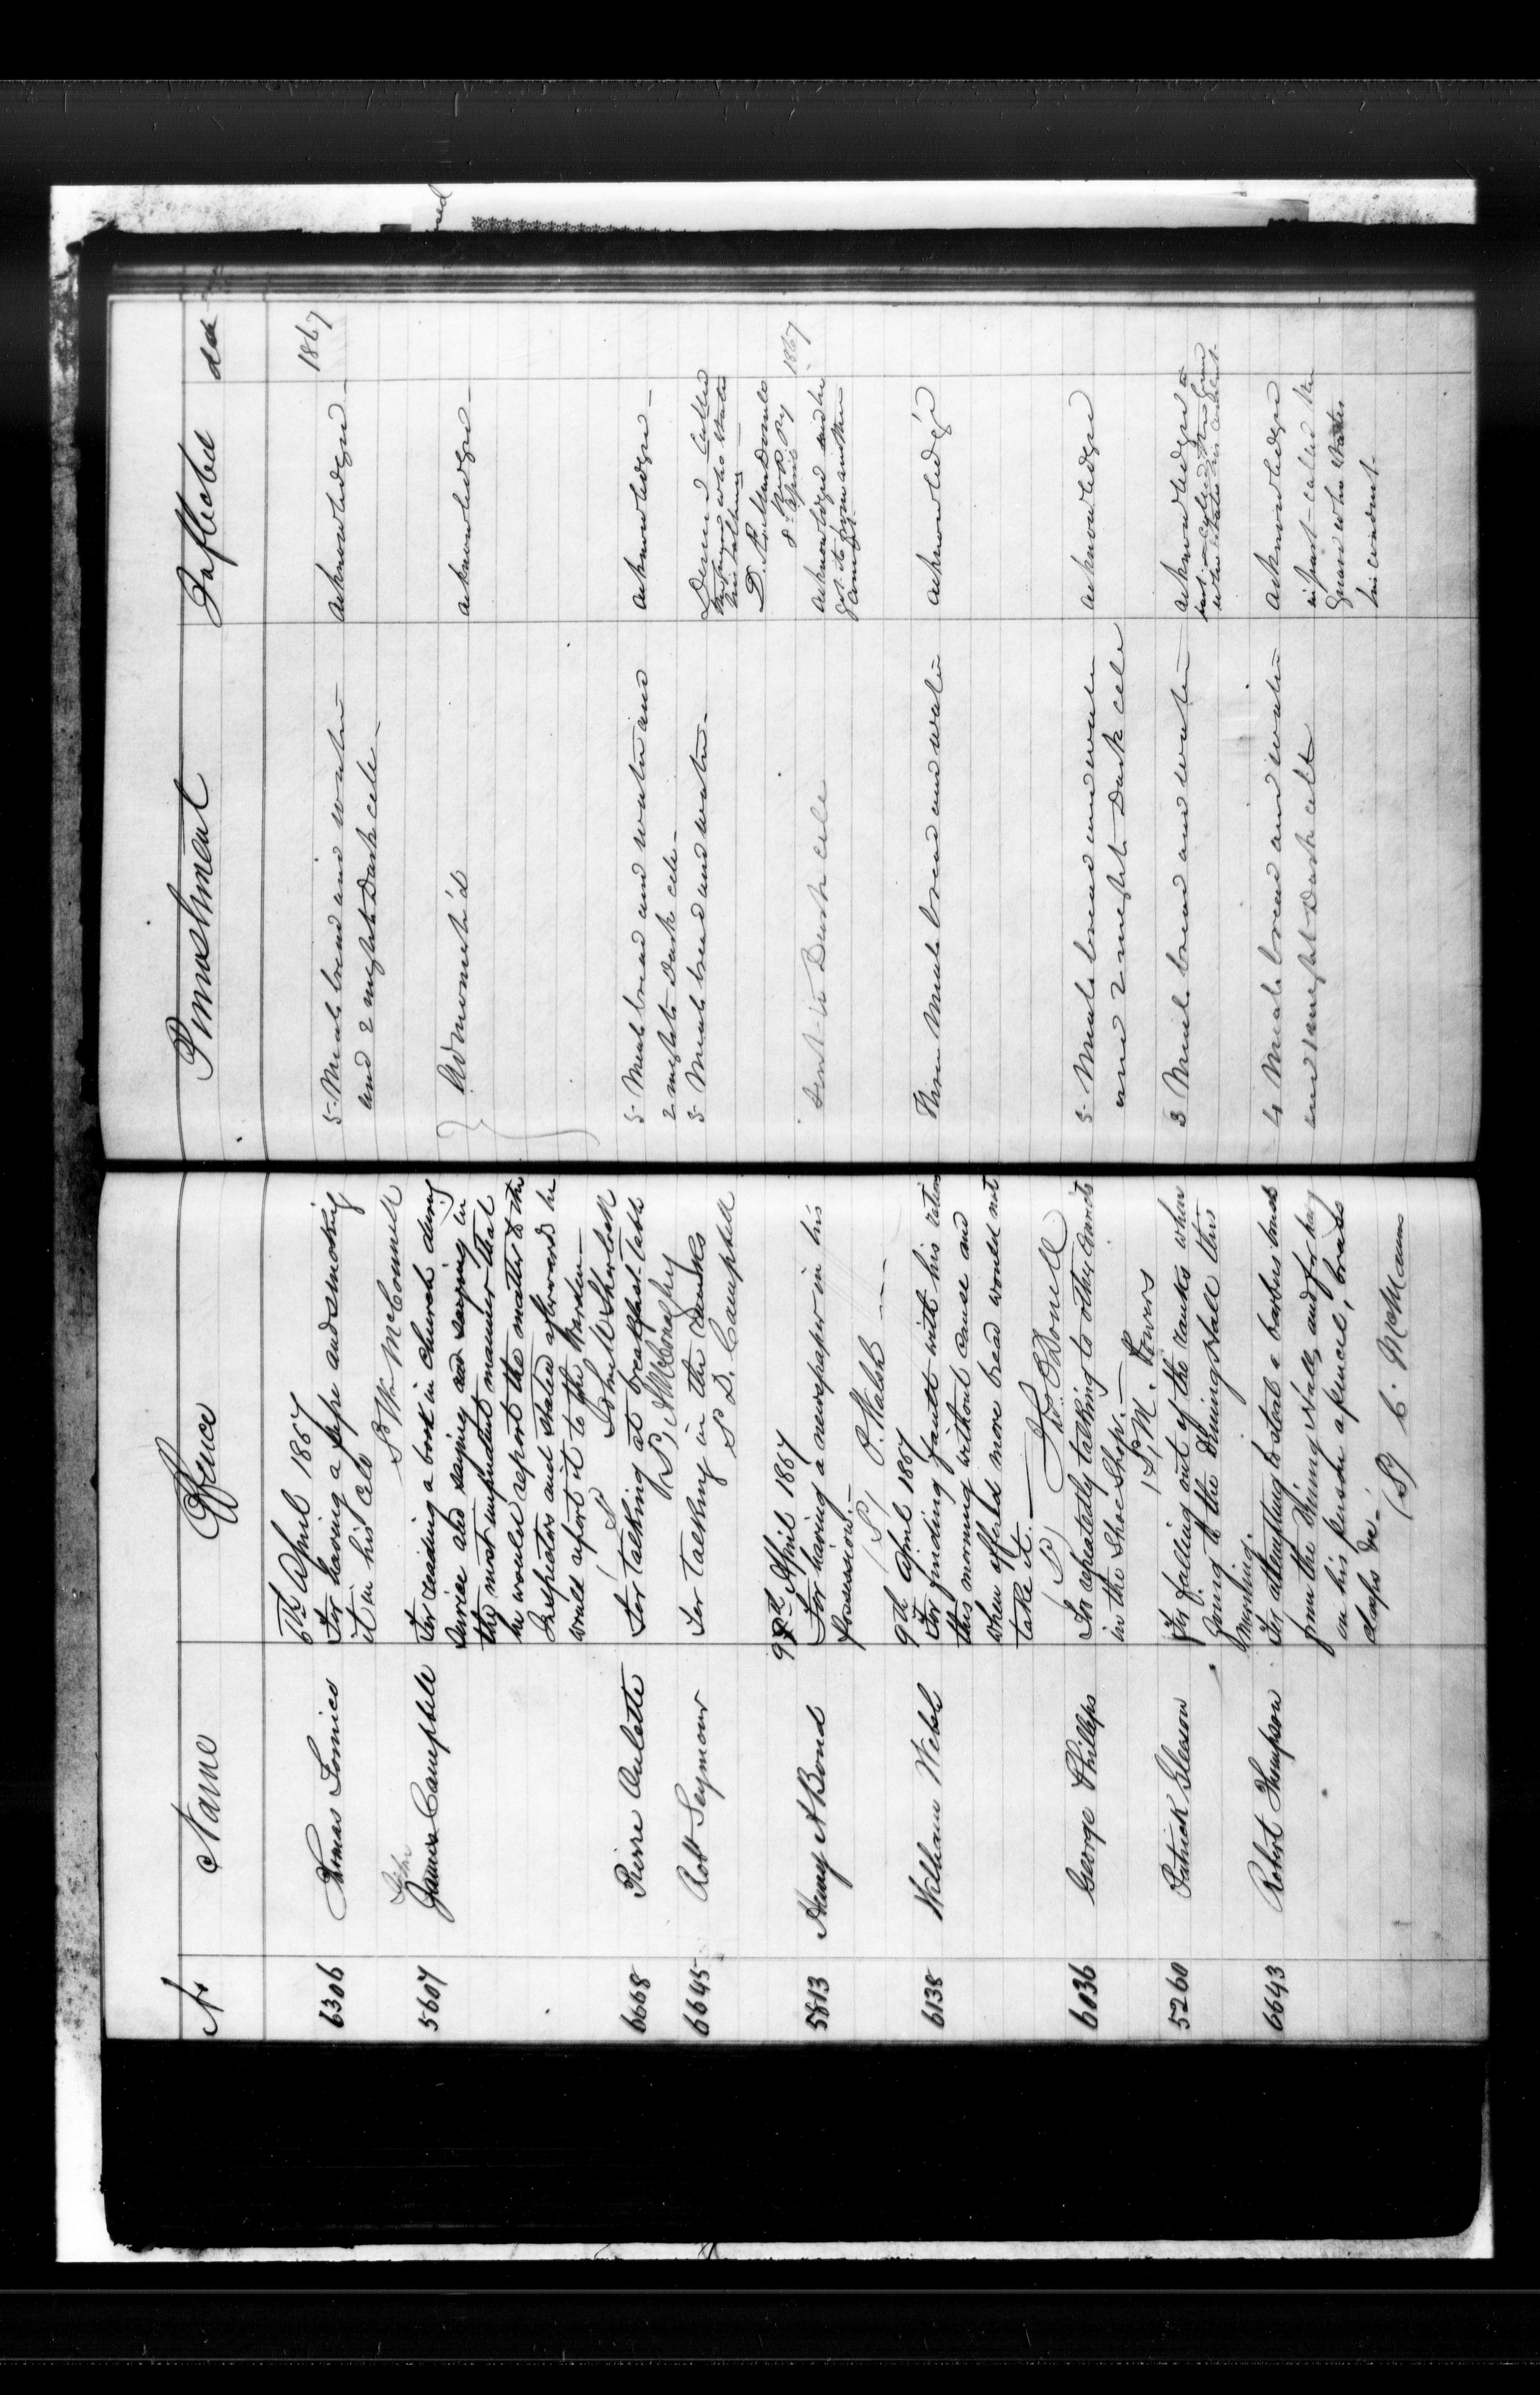 No Name Offence Punishment Inflicted
6th April 1867 1867
6306 Thomas For having a pipe and smoking 5 Meals bread and water acknowledged
it in his cell and 2 nights Dark cell
S Wm McConnell
John
5607 James Campbell For reading a book in church during Admonish'd acknowledged
service also saying and saying in
the most impudent manner that
he would report the matter to the
Inspectors and stated afterwards he
would report it to the Warden
S John W Sherlock
6668 Pierre Oulette For talking at breakfast table 5 Meals bread and water and acknowledged
2 nights Dark cell
6645 Robt Seymour For talking in the ranks 5 Meals bread and water Denied Called
S D. Campbell who states
his talking
D. Æ Macdonell
8 April 1867
9th April 1867
5813 Henry A Bond For having a newspaper in his Sent to Dark cell acknowledged said he
possession got it from another
convict
S, P. Walsh
9th April 1867
6138 William Welsh For finding fault with his ration Three Meals bread and water acknowledg'd
this morning without cause and
when offered more bread would not
take it.
(S) Jno O'Donell
6036 George Phillips For repeatedly talking to other convicts 5 Meals bread and water acknowledged
in the Shoe Shop. and 2 nights Dark cell
(S, M. Powers
5260 Patrick Gleason For falling out of the ranks when 3 Meals bread and water acknowledged in
going to the Dining Hall this part
morning.
6643 Robert Thompson For attempting to steal a from the Dining Hall, and for having 4 Meals bread and water acknowledged
on his person a pencil, brass and 1 night Dark cell in part called the
clasps &c Guard who states
(S) C. McManus